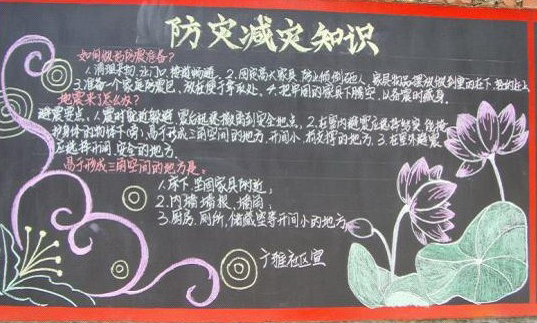 防灾减灾知识
如何做好防震准备?
1.清理杂物,让门口、楼道畅通。2.固定高大家具,防止倾倒砸人,家具物品摆放做到重的在下,轻的在上
3.准备一个家庭防震包,放在便于拿取处。4.把牢固的家具下腾空,以备震时藏身。
地震来了怎么办?
避震要点:1.震时就近躲避,震后迅速撤离到安全地点。2.在室内避震应选择结实、能掩
护身体的物体下(旁),易于形成三角空间的地方,开间小、有支撑的地方。3.在室外避震
应选择开阔、安全的地方。
易于形成三角空间的地方是:
1.床下、坚固家具附近;
2.内墙墙根、墙角;
3.厨房、厕所、储藏室等开间小的地方。
广雅社区宣